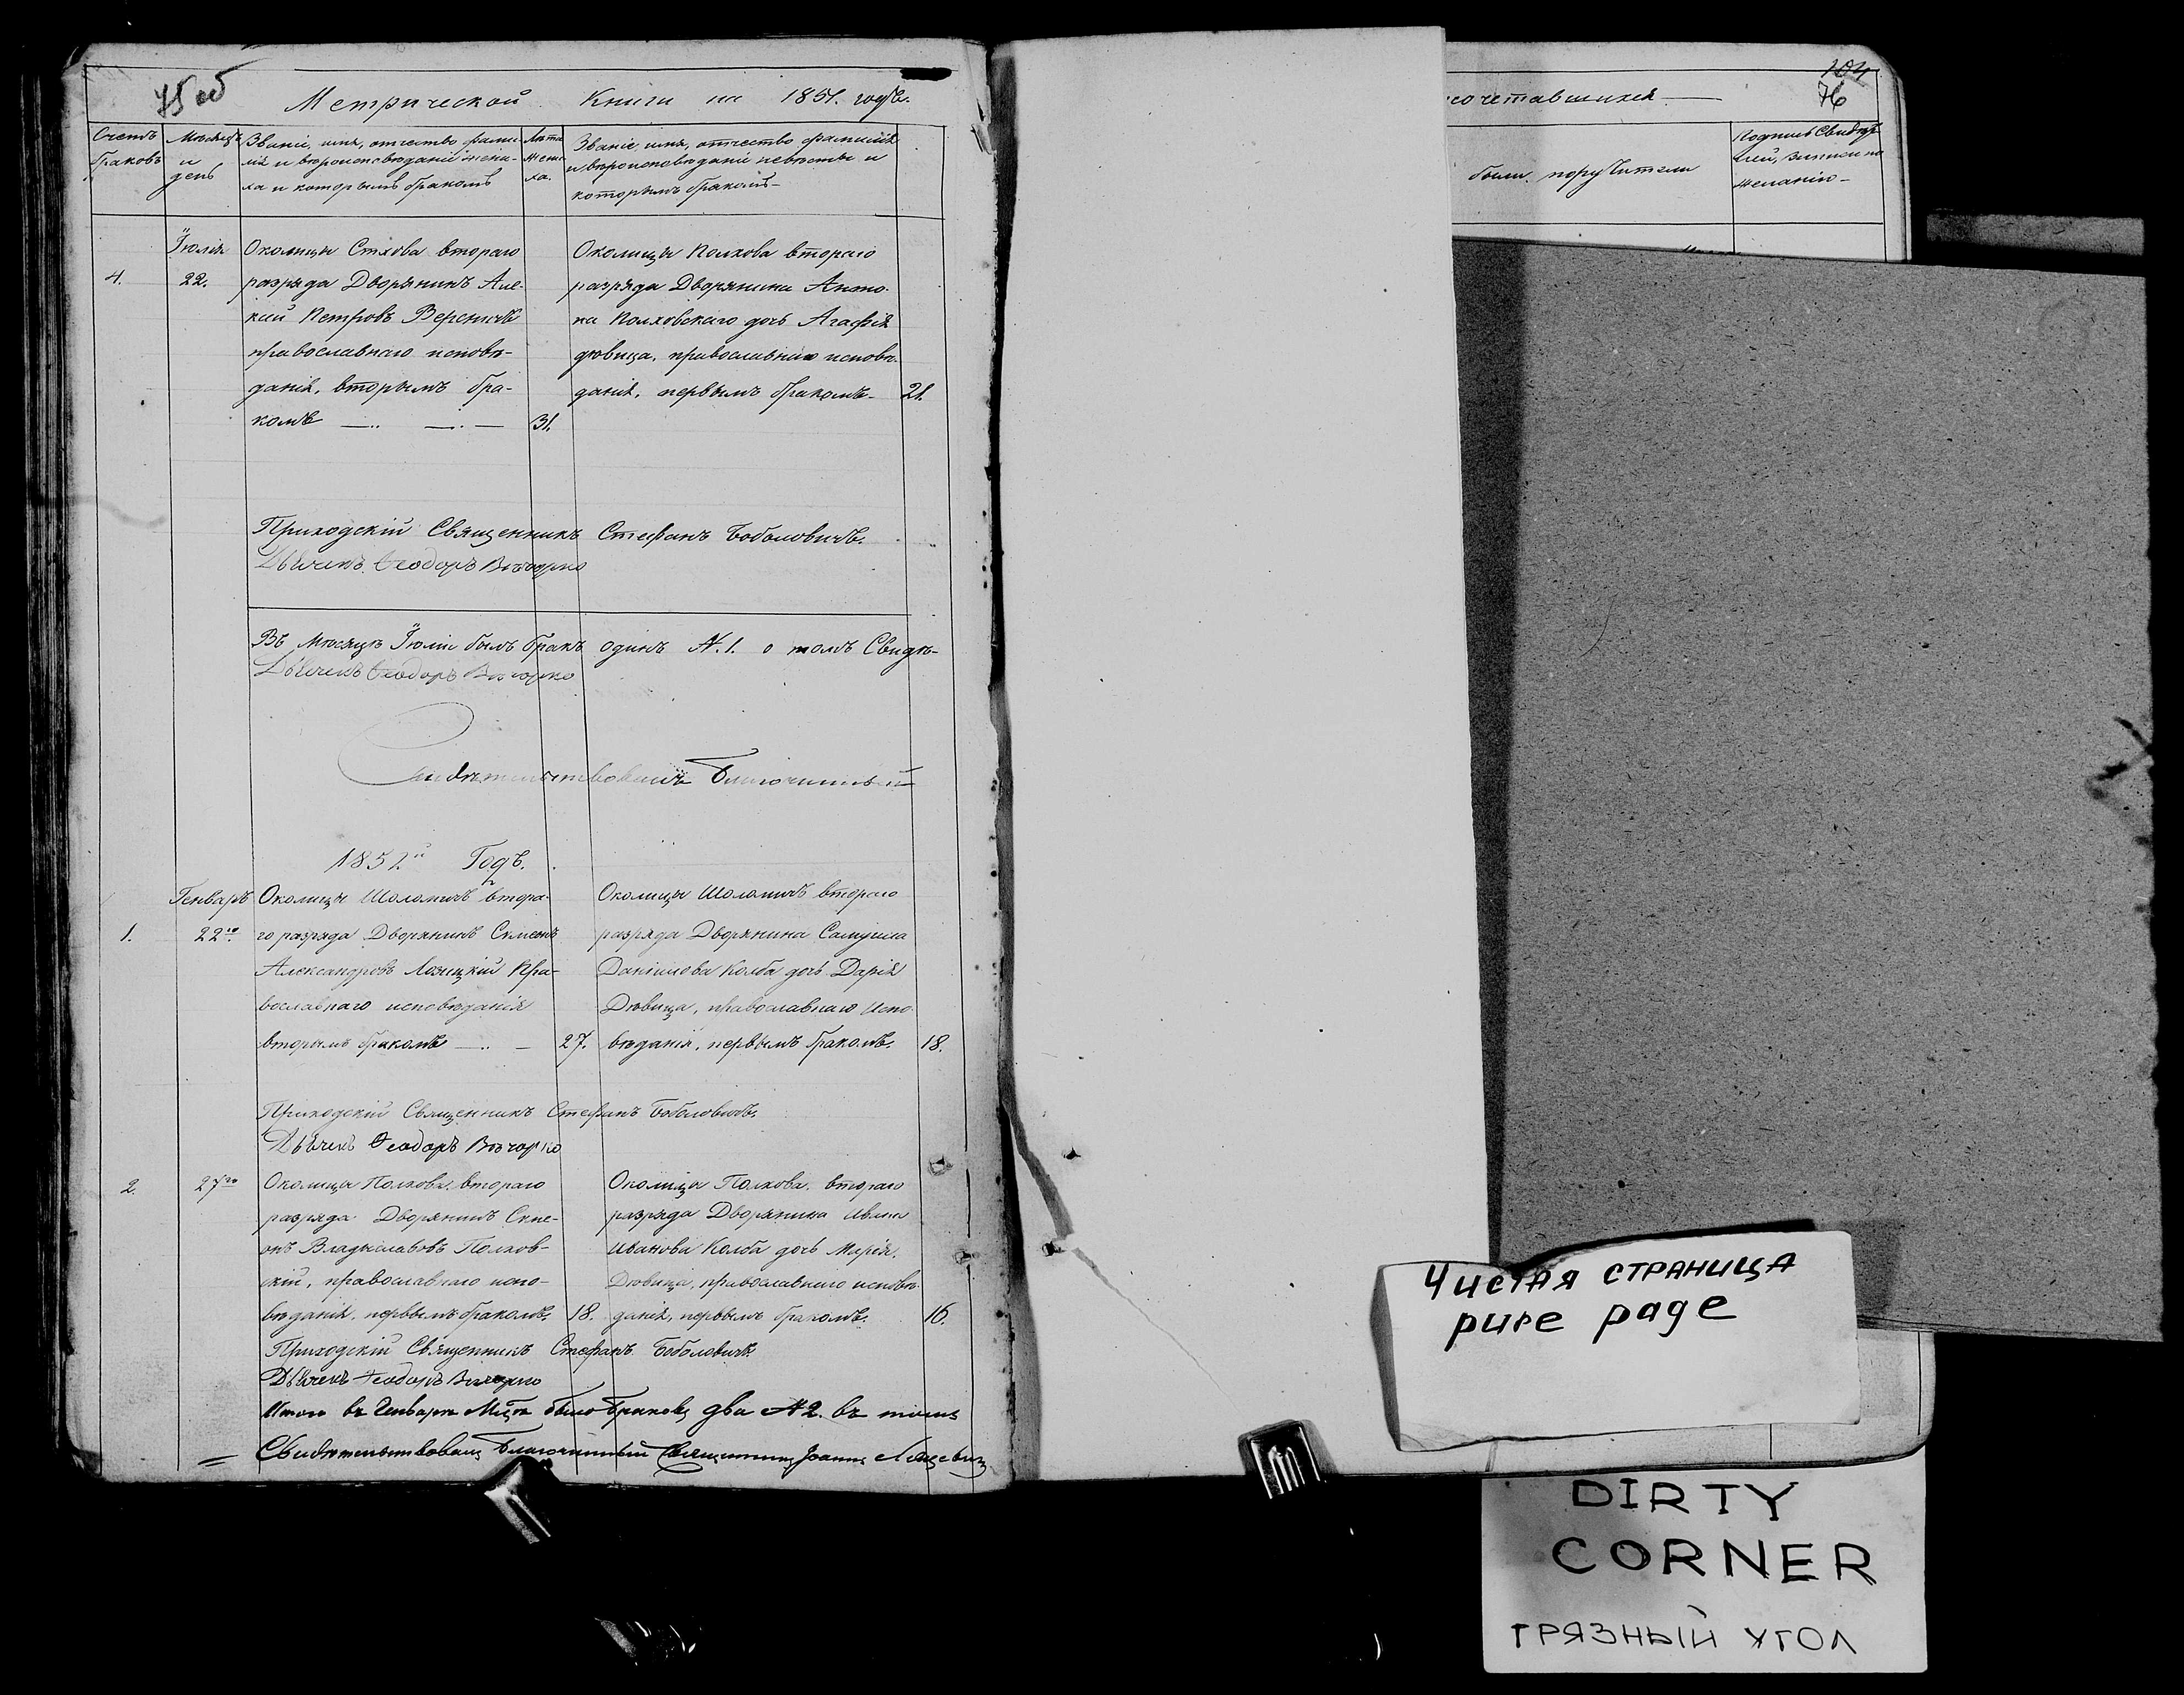 75 об
Метрической Книги на 1851. годъ.
Счетъ браковъ
Мѣсяцъ и день
Званіе, имя, отчество фами-
лія и вѣроисповѣданіе жени-
ха и которымъ бракомъ
Лѣта Жени-
ха.
Званіе имя, отчество фамилія
и вѣроисповѣданіе невѣсты и
которымъ бракомъ-
Іюлія
4.
22.
Околицы Стхова втораго
разряда Дворянинъ Але-
кий Петровъ Вереничъ
православнаго исповѣ-
данія, вторымъ бра-
комъ
31.
Околицы Полхова втораго
разряда Дворянина Анто-
на Полховскаго дочь Агафія
дѣвица, православнаго исповѣ-
данія, первымъ бракомъ-
21.
Приходскій Священникъ Стефанъ Боболовичъ.
Дьячекъ Ѳеодоръ Вечорко
Въ Мѣсяцѣ Іюліи былъ бракъ одинъ N. 1. о томъ Свидѣ-
Дьячекъ Ѳеодоръ Вечорко
Свидѣтельствовалъ Благочинный
1852й Годъ.
Генваръ
1.
22го
Околицы Шоломичъ втора-
го разряда Дворянинъ Симеонъ
Александровъ Лозицкій Пра-
вославнаго исповѣданія
вторымъ бракомъ
27.
Околицы Шоломичъ втораго
разряда Дворянина Самуила
Даніилова Колба дочь Дарія
Дѣвица, православнаго Испо-
вѣданія, первымъ бракомъ.
18.
Приходскій Священникъ Стефанъ Боболовичъ.
Дьячекъ Ѳеодоръ Вечорко
2.
27го
Околицы Полхова втораго
разряда Дворянинъ Симе-
онъ Владыславовъ Полхов-
скій, православнаго испо-
вѣданія, первымъ бракомъ.
18.
Околицы Полхова. втораго
разряда Дворянина Ивана
Иванова Колба дочь Марія.
Дѣвица, православнаго исповѣ-
данія, первымъ бракомъ.
16.
Приходскій Священникъ Стефанъ Боболовичъ.
Дьячекъ Ѳеодоръ Вечорко
Итого въ Генварѣ Мцѣ было браковъ два N 2. въ томъ
Свидѣтельствовалъ Благочинный Священникъ Іоаннъ
сочетавшихся
104
76
были поручители
Подпись Свидѣт
желанію-
Чистая страница
pure page
DIRTY
CORNER
грязный угол